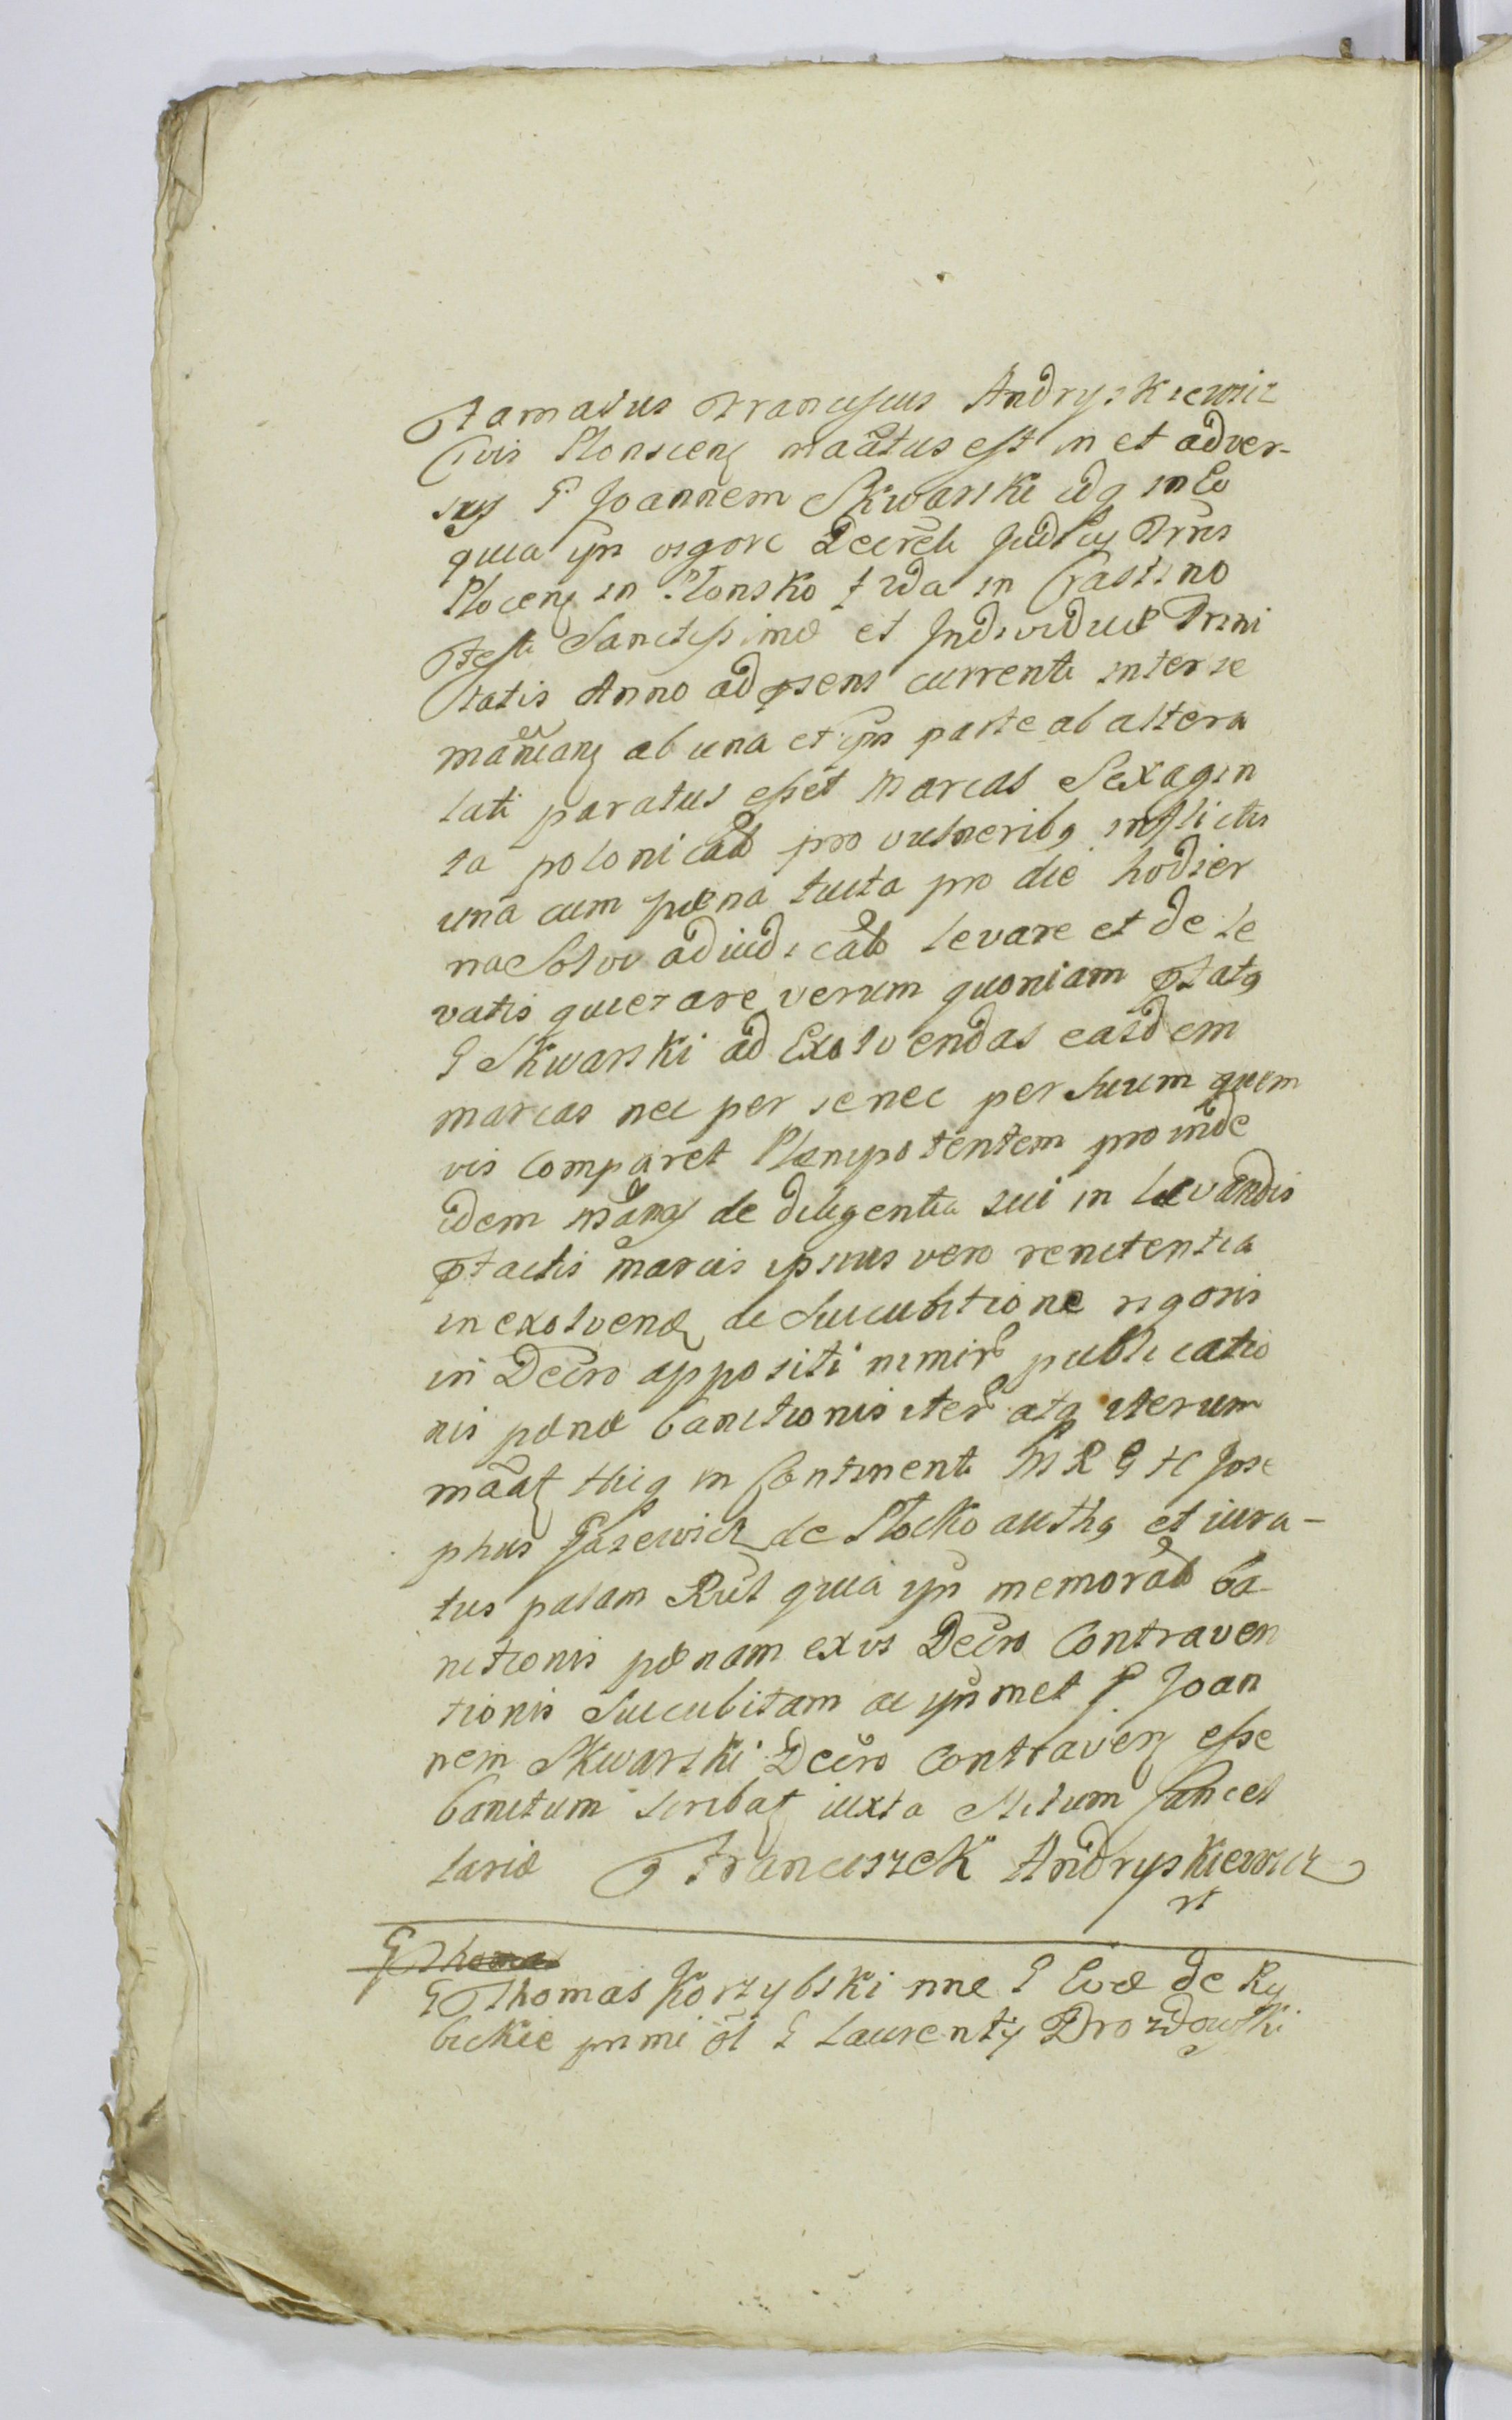 Famatus Franciscus Andryskiewicz
Civis Plonscen maatus est in et adver-
sus G Joannem Skwarski idq in Eo
quia ipn vigore Decreti Judicy Trris
Plocen in Plonsko f rda in Crastino
Festi Sanctissimæ et Individuæ Trini
tatis Anno ad psens currenti inter se
manean ab una et ipn parte ab altera
lati paratus esset Marcas Sexagin
ta polonicales pro vulneribq inflictis
una cum pæna tucta pro die hodier
na Solvi adiudicatas levare et de le
vatis quietare verum quoniam ptatq
G Skwarski ad Exolvendas easdem
marcas nec per se nec per Suum quem
vis Comparet Plenipotentem proinde
idem maan de diligentia sui in levandis
ptactis marcis ipsius vero renitentia
in exolvend de Succubitione rigoris
in Decro appositi nimir publicatio
nis pænæ banitionis iter atq iterum
maat Huiq in Continenti M R G H Jose
phus Gasewicz de Plocko authq et iura-
tus palam Rult quia ipn memorata ba
nitionis pænam ex vi Decro Contraven
tionis Succubitam ac ipnmet G Joan
nem Skwarski Decro Contraven esse
banitum scribat iuxta Stilum Cancel
lariæ Franciszek Andryskiewicz
G Thoma
G Thomas Korzybski nne G Evæ de Ry
bickie primi ol G Laurenty Drozdowski